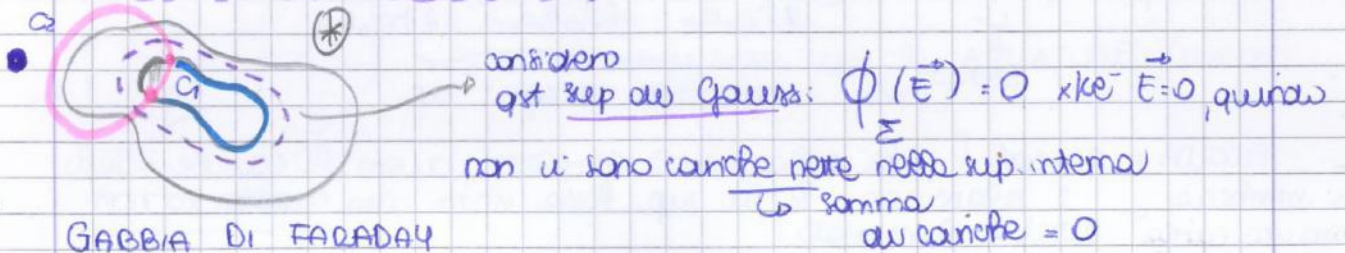 C2
C1
*
considero
qst sup di Gauss: Φ_Σ (E⃗) = 0 xké E⃗=0, quindi
non vi sono cariche nette nella sup. interna
↳ somma
di cariche = 0
GABBIA DI FARADAY